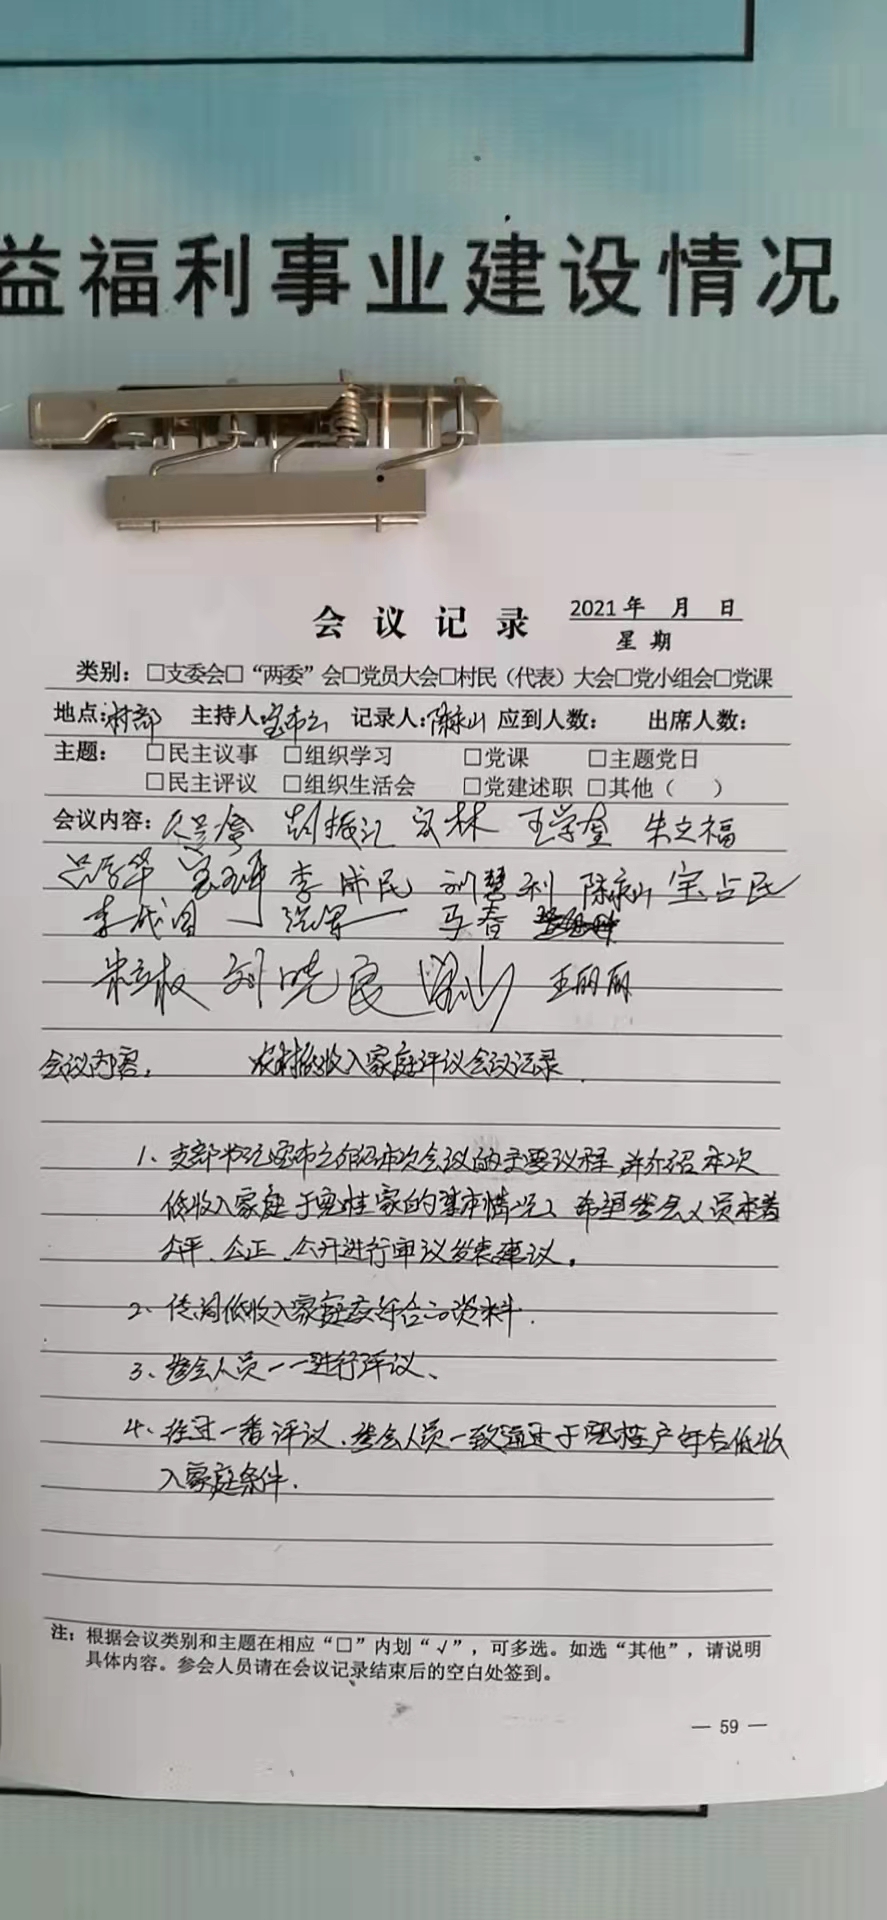 益福利事业建设情况
会议记录
2021年 月 日
星期
类别：□支委会□“两委”会□党员大会□村民（代表）大会□党小组会□党课
地点：村部 主持人： 记录人： 应到人数： 出席人数：
主题： □民主议事 □组织学习 □党课 □主题党日
□民主评议 □组织生活会 □党建述职 □其他（ ）
会议内容： 胡振江 王学奎 朱立福
李成民 刘慧利 宝占民
马春
朱立权 刘晓良 王丽丽
会议内容： 农村低收入家庭评议会议记录
1、支部书记 介绍本次会议的主要议程，并介绍本次
低收入家庭于 家的基本情况，希望参会人员本着
公平、公正、公开进行审议发表建议。
2、传阅低收入家庭 资料.
3、参会人员一一进行评议、
4、经过一番评议，参会人员一致通过于 户符合低收
入家庭条件.
注：根据会议类别和主题在相应“□”内划“√”，可多选。如选“其他”，请说明
具体内容。参会人员请在会议记录结束后的空白处签到。
— 59 —